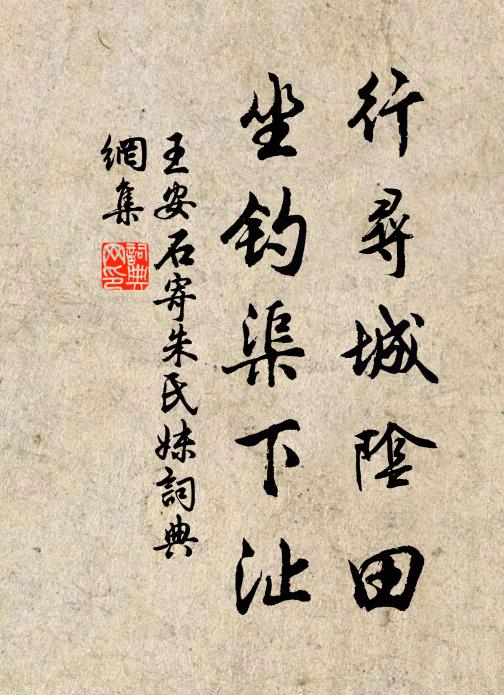 行尋城陰田
坐釣渠下沚
王安石寄朱氏妹詞典
網集
詞典
网印